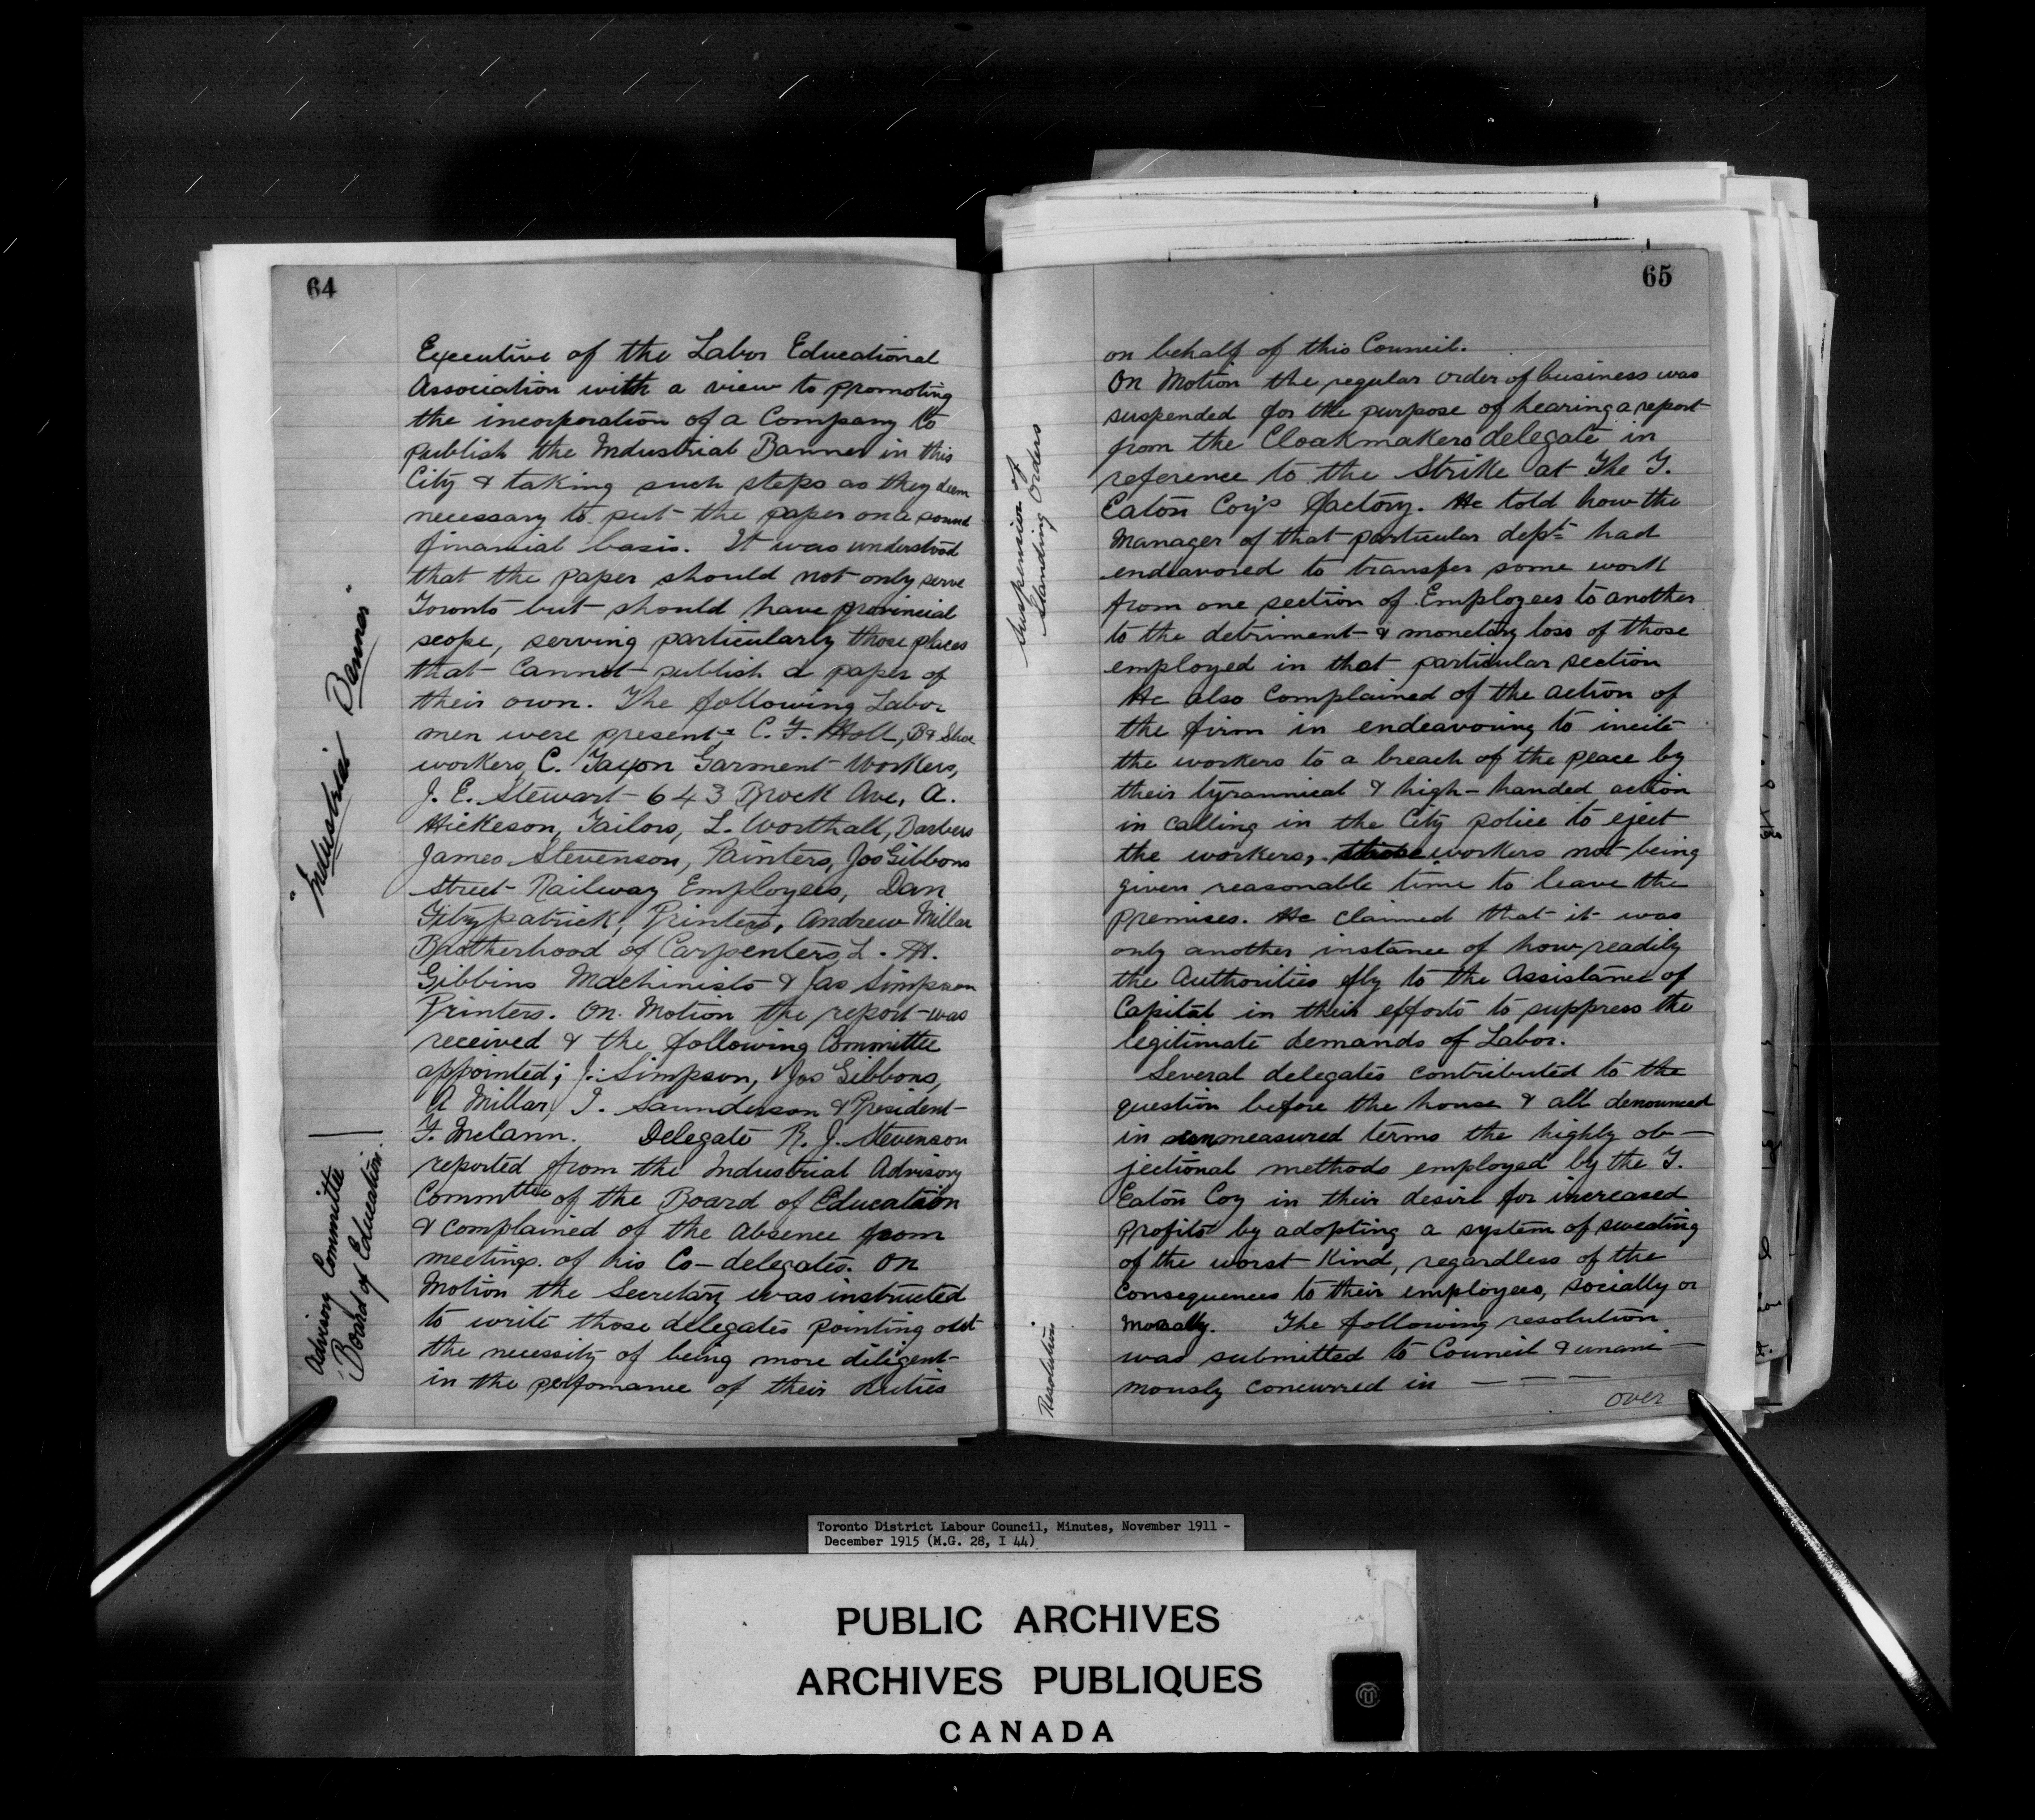 64
Executive of the Labor Educational
Association with a view to promoting
the incorporation of a Company to
publish the Industrial Banner in this
City & taking such steps as they deem
necessary to put the paper on a sound
financial basis. It was understood
that the paper should not only serve
Toronto but should have provincial
scope, serving particularly those places
that cannot publish a paper of
their own. The following Labor
men were present: C. F. Holl, B & Shoe
workers, C. Garment Workers,
J. E. Stewart - 643 Brock Ave, A.
Hickeson, Tailors, L. Worthall, Barbers
James Stevenson, Painters, Jos Gibbons
Street Railway Employees, Dan
Fitzpatrick, Printers, Andrew Millar
Brotherhood of Carpenters, L. H.
Gibbins Machinists & Jas Simpson
Printers. On Motion the report was
received & the following Committee
appointed; J. Simpson, Jos Gibbons,
A Millar, J. Saunderson & President
F. McCann. Delegate R. J. Stevenson
reported from the Industrial Advisory
Committee of the Board of Education
& complained of the absence from
meetings of his Co-delegates. On
Motion the Secretary was instructed
to write those delegates pointing out
the necessity of being more diligent
in the perfomance of their duties
"Industrial Banner"
Advisory Committee
Board of Education
65
on behalf of this Council.
On Motion the regular order of business was
suspended for the purpose of hearing a report
from the Cloakmakers delegate in
reference to the Strike at The T.
Eaton Coy's factory. He told how the
Manager of that particular dept had
endeavored to transfer some work
from one section of Employees to another
to the detriment & monetary loss of those
employed in that particular section
He also complained of the action of
the firm in endeavouring to incite
the workers to a breach of the peace by
their tyrannical & high-handed action
in calling in the City police to eject
the workers, those workers not being
given reasonable time to leave the
premises. He claimed that it was
only another instance of how readily
the Authorities fly to the Assistance of
Capital in their efforts to suppress the
legitimate demands of Labor.
Several delegates contributed to the
question before the house & all denounced
in unmeasured terms the highly ob-
jectional methods employed by the T.
Eaton Coy in their desire for increased
profits by adopting a system of sweating
of the worst kind, regardless of the
consequences to their employees, socially or
Morally. The following resolution
was submitted to Council & unani-
mously concurred in - - -
over
Suspension of
Standing Orders
Resolution
Toronto District Labour Council, Minutes, November 1911 -
December 1915 (M.G. 28, I 44)
PUBLIC ARCHIVES
ARCHIVES PUBLIQUES
CANADA